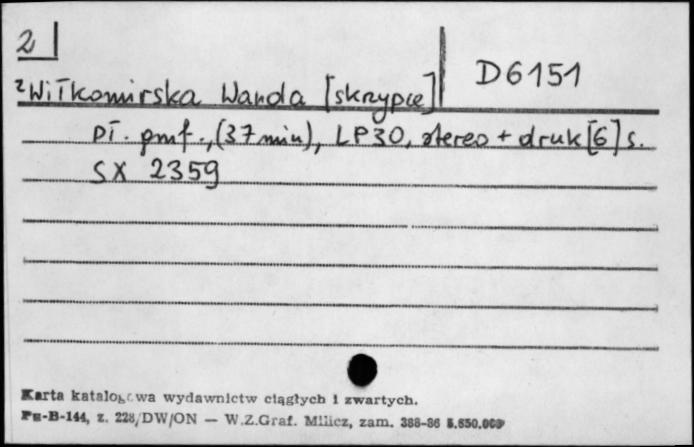 2
D6151
²Wiłkomirska Wanda [skrzypce]
pł. gmf., (37 min), LP30, stereo + druk [6] s.
SX 2359
Karta katalogowa wydawnictw ciągłych i zwartych.
Pu-B-144, z. 228/DW/ON — W.Z.Graf. Milicz, zam. 388-86 5.650.000